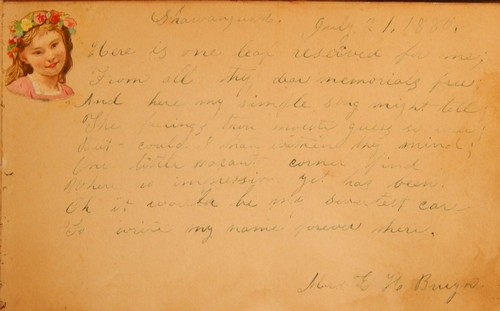 Shawangunk. July 21, 1880.
Here is one leaf reserved for me;
From all thy dear memorials free
And here my simple song might tell
The feelings thou must guess so well
But could I man within thy mind;
One little vacant corner find
Where no impression yet has been.
Oh it would be my sweetest care
To write my name forever there.
Mrs. E H Bruyn